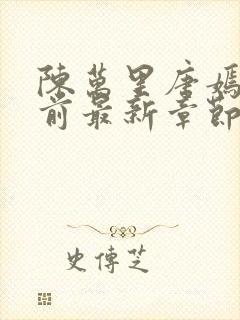 陳萬里唐嫣
前最新章節
史傳芝